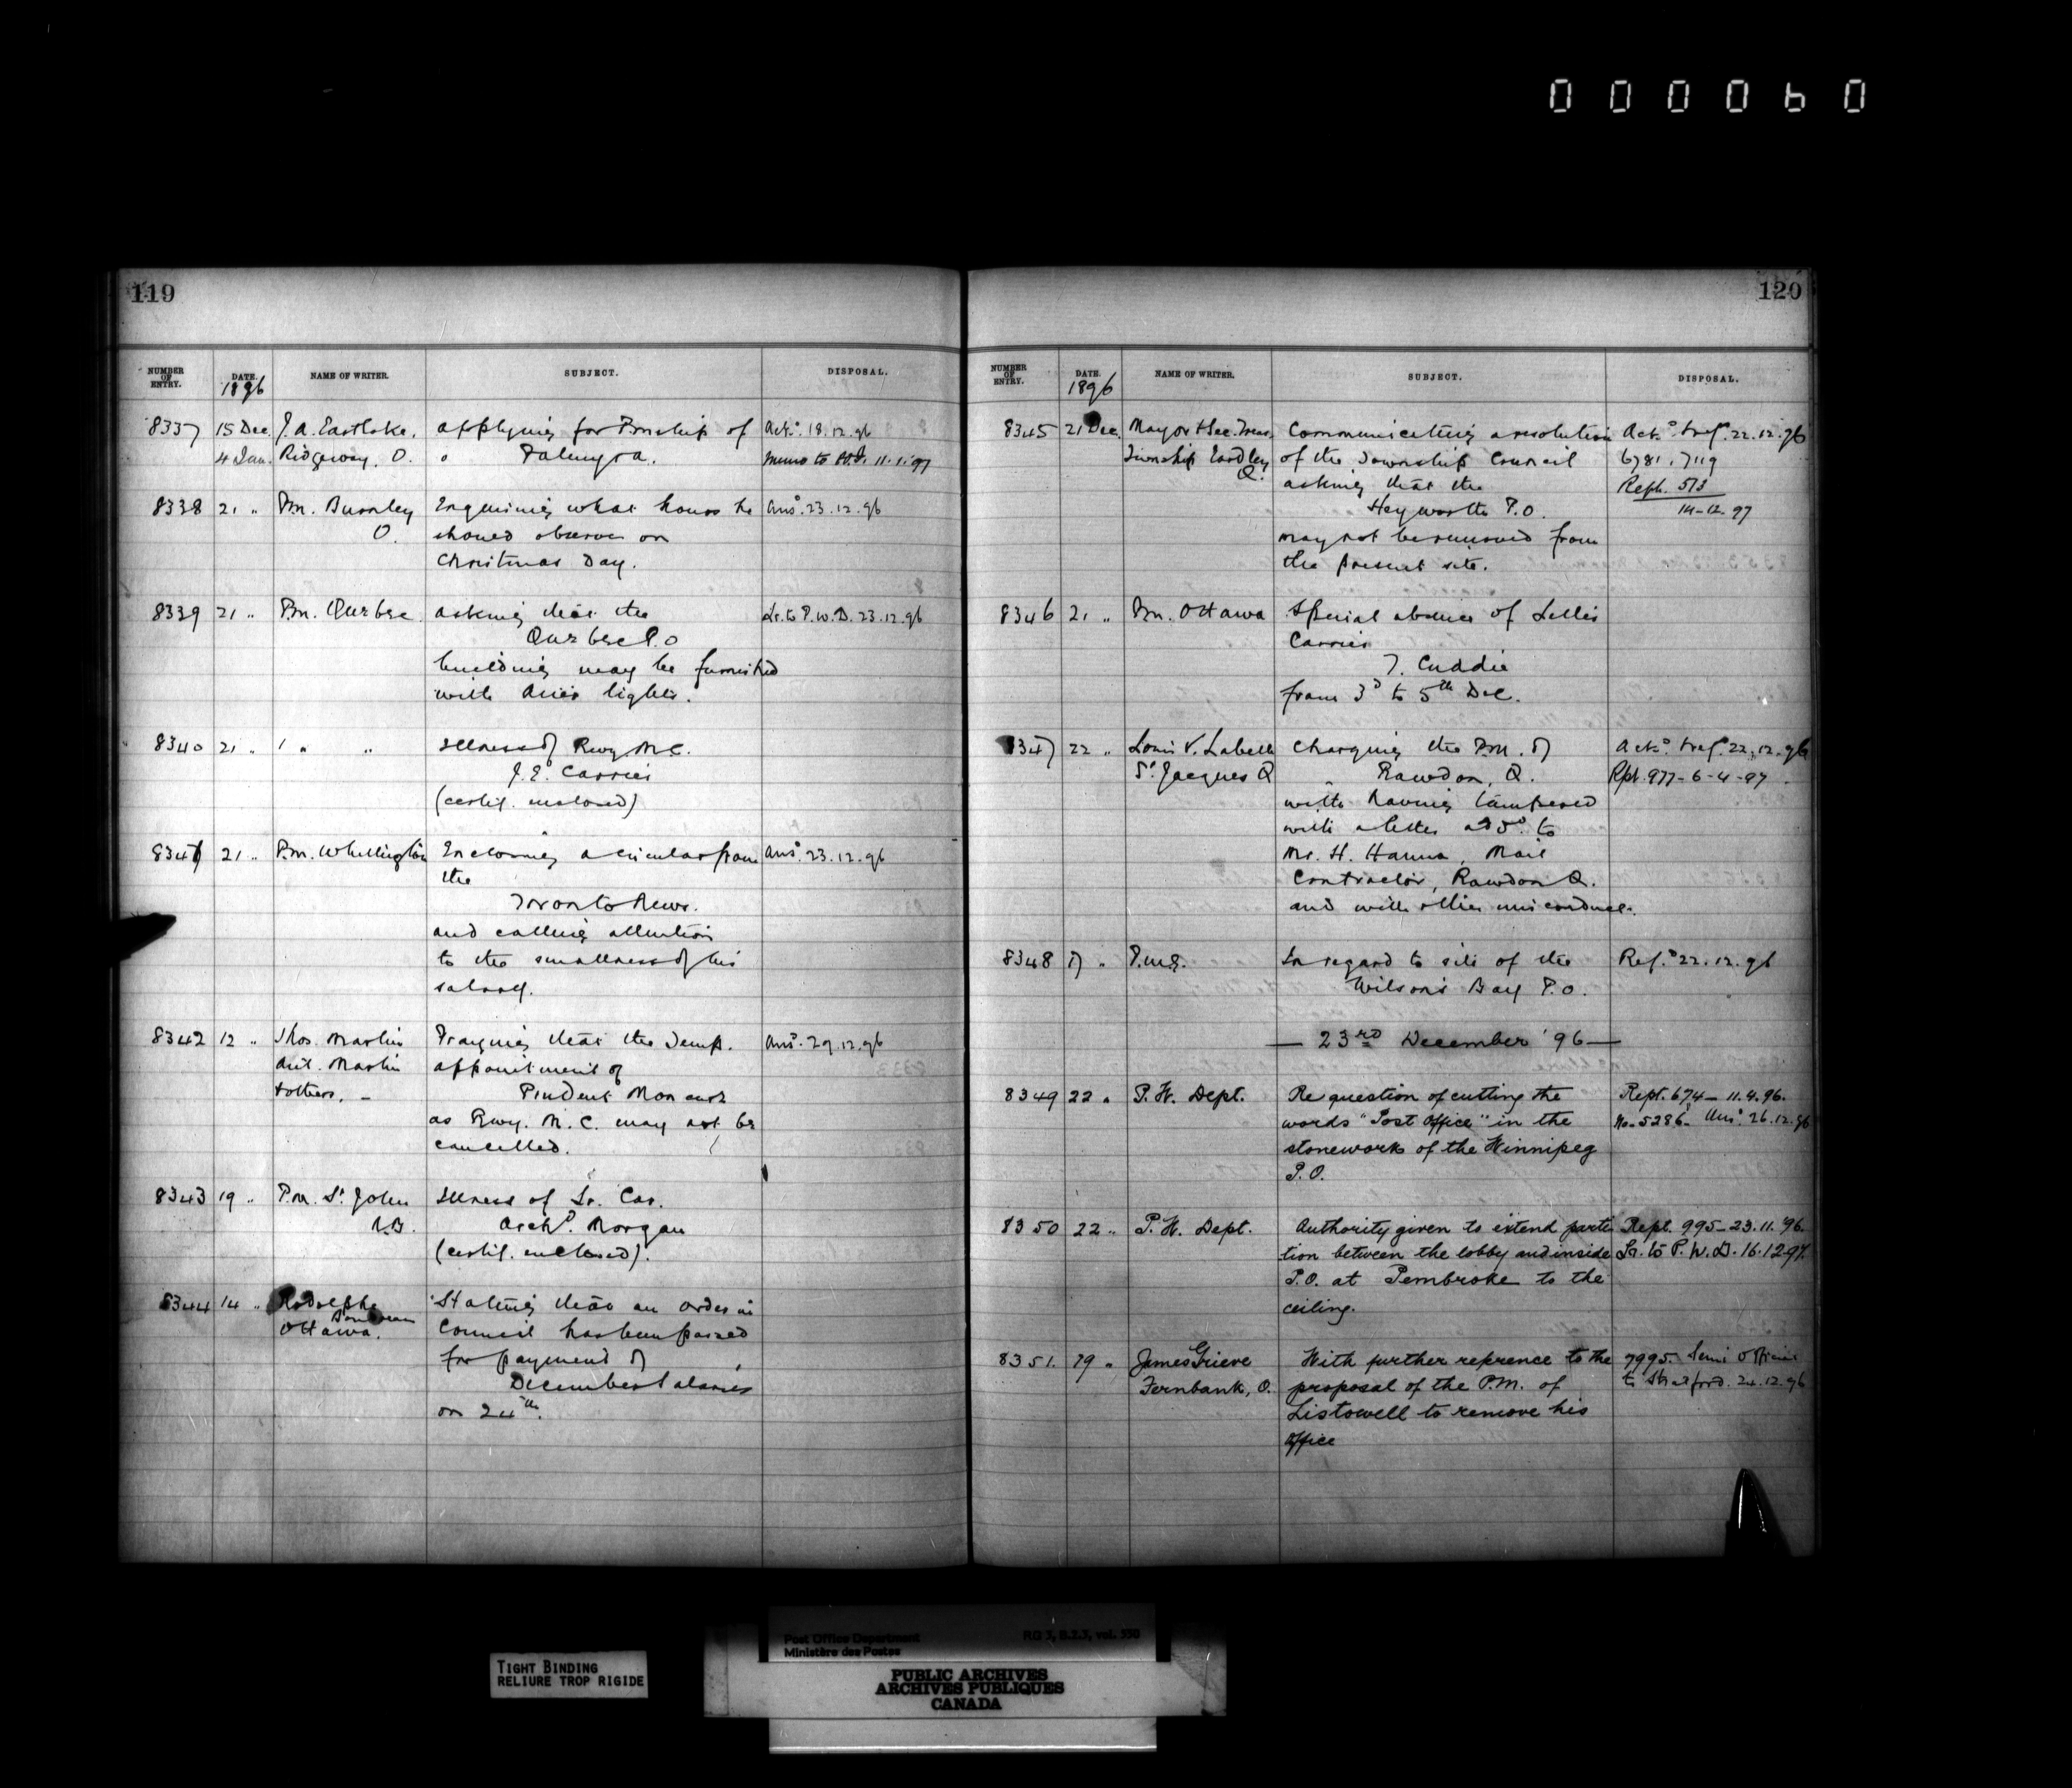 000060
119
NUMBER OF ENTRY. DATE. 1896 NAME OF WRITER. SUBJECT. DISPOSAL.
8337 15 Dec. J. A. Eastlake, applying for Pmship of Ackd. 18.12.96
4 Jan. Ridgeway, O. " Palmyra. Memo to 11.1.97
8338 21 " Pm. Burnley Enquiring what hours he Ansd. 23.12.96
O. should observe on
Christmas Day.
8339 21 " Pm. Quebec. asking that the Lr. to P.W.D. 23.12.96
Quebec P.O
building may be furnished
with lights.
8340 21 " " " Illness of Rwy. M.C.
J. E. Carrier
(certif. enclosed)
8341 21 " P.m. Whittington Enclosing a circular from Ansd. 23.12.96
the
Toronto News.
and calling attention
to the smallness of his
salary.
8342 12 " Thos. Martin Praying that the temp. Ansd. 29.12.96
Ant. Martin appointment of
& others. Prudent
as Rwy. M. C. may not be
cancelled.
8343 19 " P.m. St. John Illness of Lr. Car.
N.B. Archd. Morgan
(certif. enclosed).
8344 14 " Rodolphe Stating that an order in
Ottawa. Council has been passed
for payment of
December Salaries
on 24th.
120
NUMBER OF ENTRY. DATE. 1896 NAME OF WRITER. SUBJECT. DISPOSAL.
8345 21 Dec. Mayor & Sec. Treas. Communicating a resolution Ackd. & refd. 22.12.96
Township Eardley of the Township Council 6781, 7119
Q. asking that the Reph. 513
Heyworth P.O. 14-12-97
may not be removed from
the present site.
8346 21 " Pm. Ottawa Special absence of Letter
Carrier
T. Cuddie
from 3d to 5th Dec.
8347 22 " Louis V. Labelle Charging the P.M. of Ackd. & refd. 22.12.96
St. Jacques Q Rawdon, Q. Rpt. 977-6-4-97
with having tampered
with a letter add. to
Mr. H. Hanna, Mail
Contractor, Rawdon Q.
and with other misconduct.
8348 17 " P.M.G. In regard to site of the Refd. 22.12.96
Wilson's Bay P.O.
— 23rd December '96 —
8349 22 " P. W. Dept. Re question of cutting the Rept. 674 - 11.4.96.
words "Post Office" in the No. 5286 Ansd. 26.12.96
stonework of the Winnipeg
P.O.
8350 22 " P. W. Dept. Authority given to extend parti Rept. 995 - 23.11.'96.
tion between the lobby and inside Lr. to P.W.D. 16.12.97.
P.O. at Pembroke to the
ceiling.
8351. 19 " James Grieve With further reference to the 7995. Semi Official
Fernbank, O. proposal of the P.M. of to Stratford. 24.12.96
Listowell to remove his
office
TIGHT BINDING
RELIURE TROP RIGIDE
Post Office Department RG 3, B.2.3, vol. 
Ministère des Postes
PUBLIC ARCHIVES
ARCHIVES PUBLIQUES
CANADA